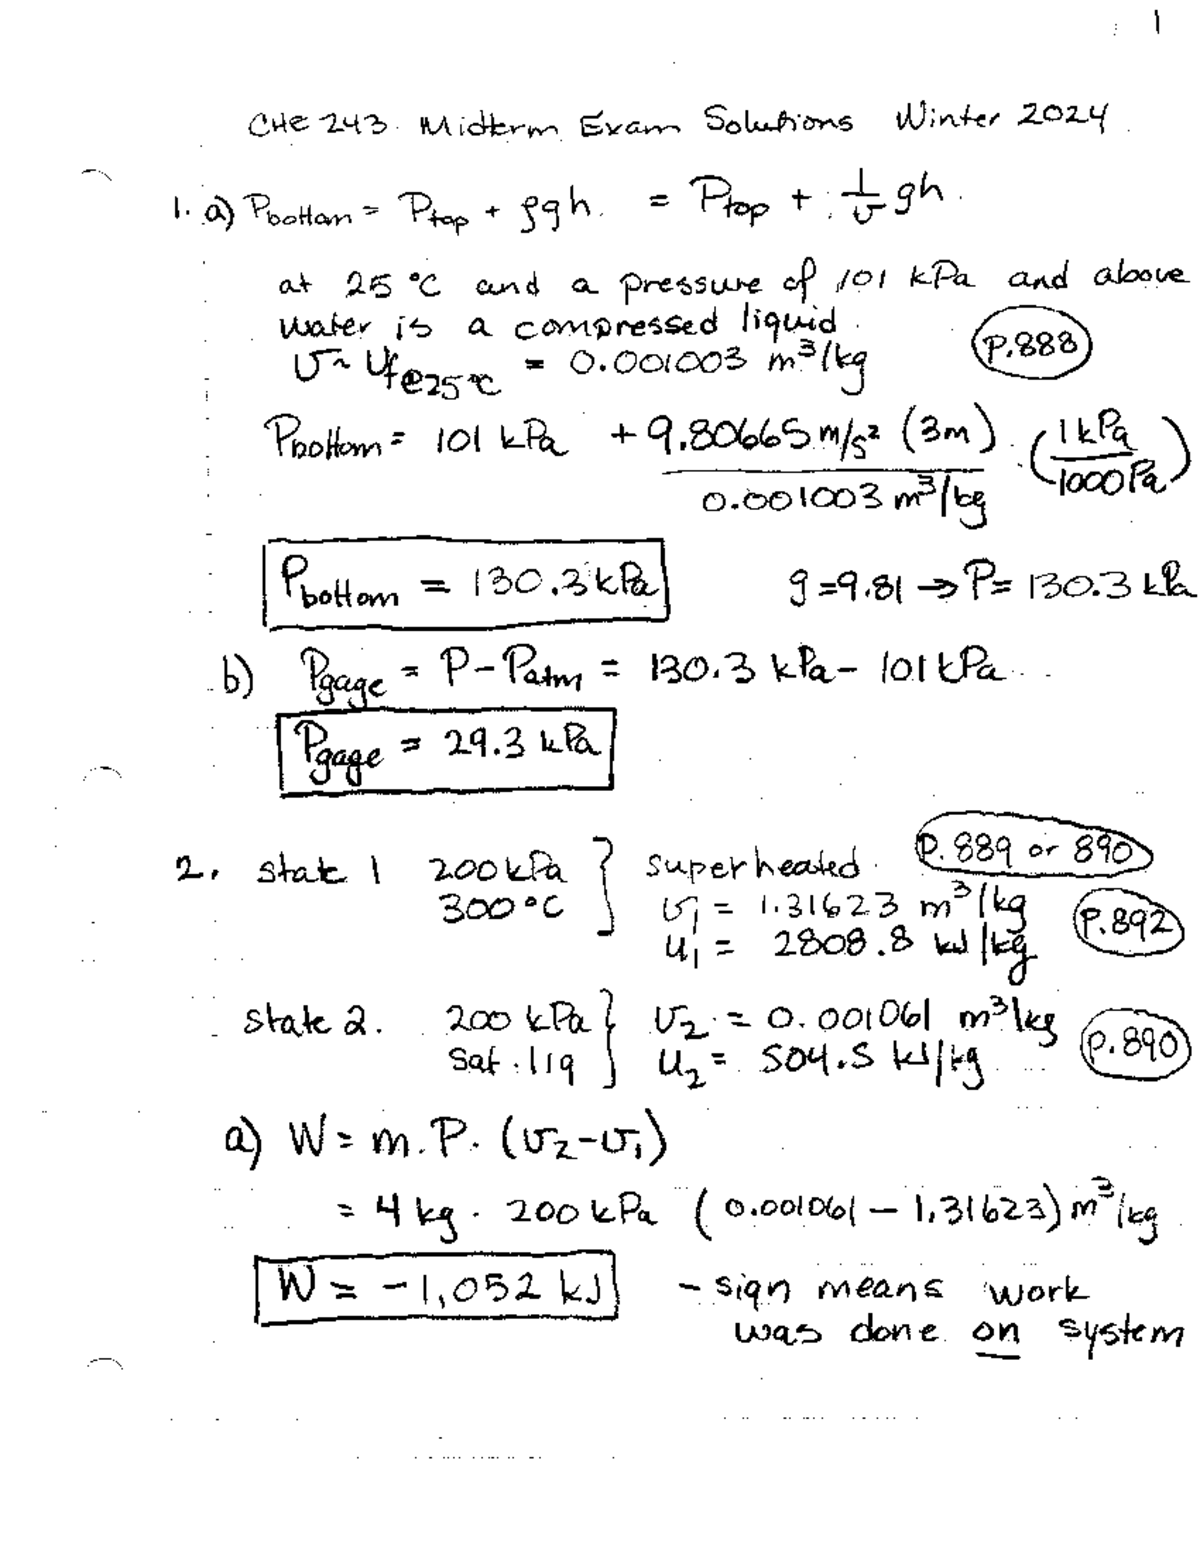 1
CHE 243 Midterm Exam Solutions Winter 2024
1. a) Pbottom = Ptop + ρgh = Ptop + 1/v gh
at 25 °C and a pressure of 101 kPa and above
water is a compressed liquid.
v ~ vf@25°C = 0.001003 m³/kg p.888
Pbottom = 101 kPa + 9.80665 m/s² (3m) / 0.001003 m³/kg · (1 kPa / 1000 Pa)
Pbottom = 130.3 kPa g = 9.81 → P = 130.3 kPa
b) Pgage = P - Patm = 130.3 kPa - 101 kPa
Pgage = 29.3 kPa
2. state 1 200 kPa } superheated p. 889 or 890
300 °C v1 = 1.31623 m³/kg p.892
u1 = 2808.8 kJ/kg
state 2. 200 kPa } v2 = 0.001061 m³/kg p.890
sat. liq u2 = 504.5 kJ/kg
a) W = m · P · (v2 - v1)
= 4 kg · 200 kPa (0.001061 - 1.31623) m³/kg
W = -1,052 kJ - sign means work
was done on system